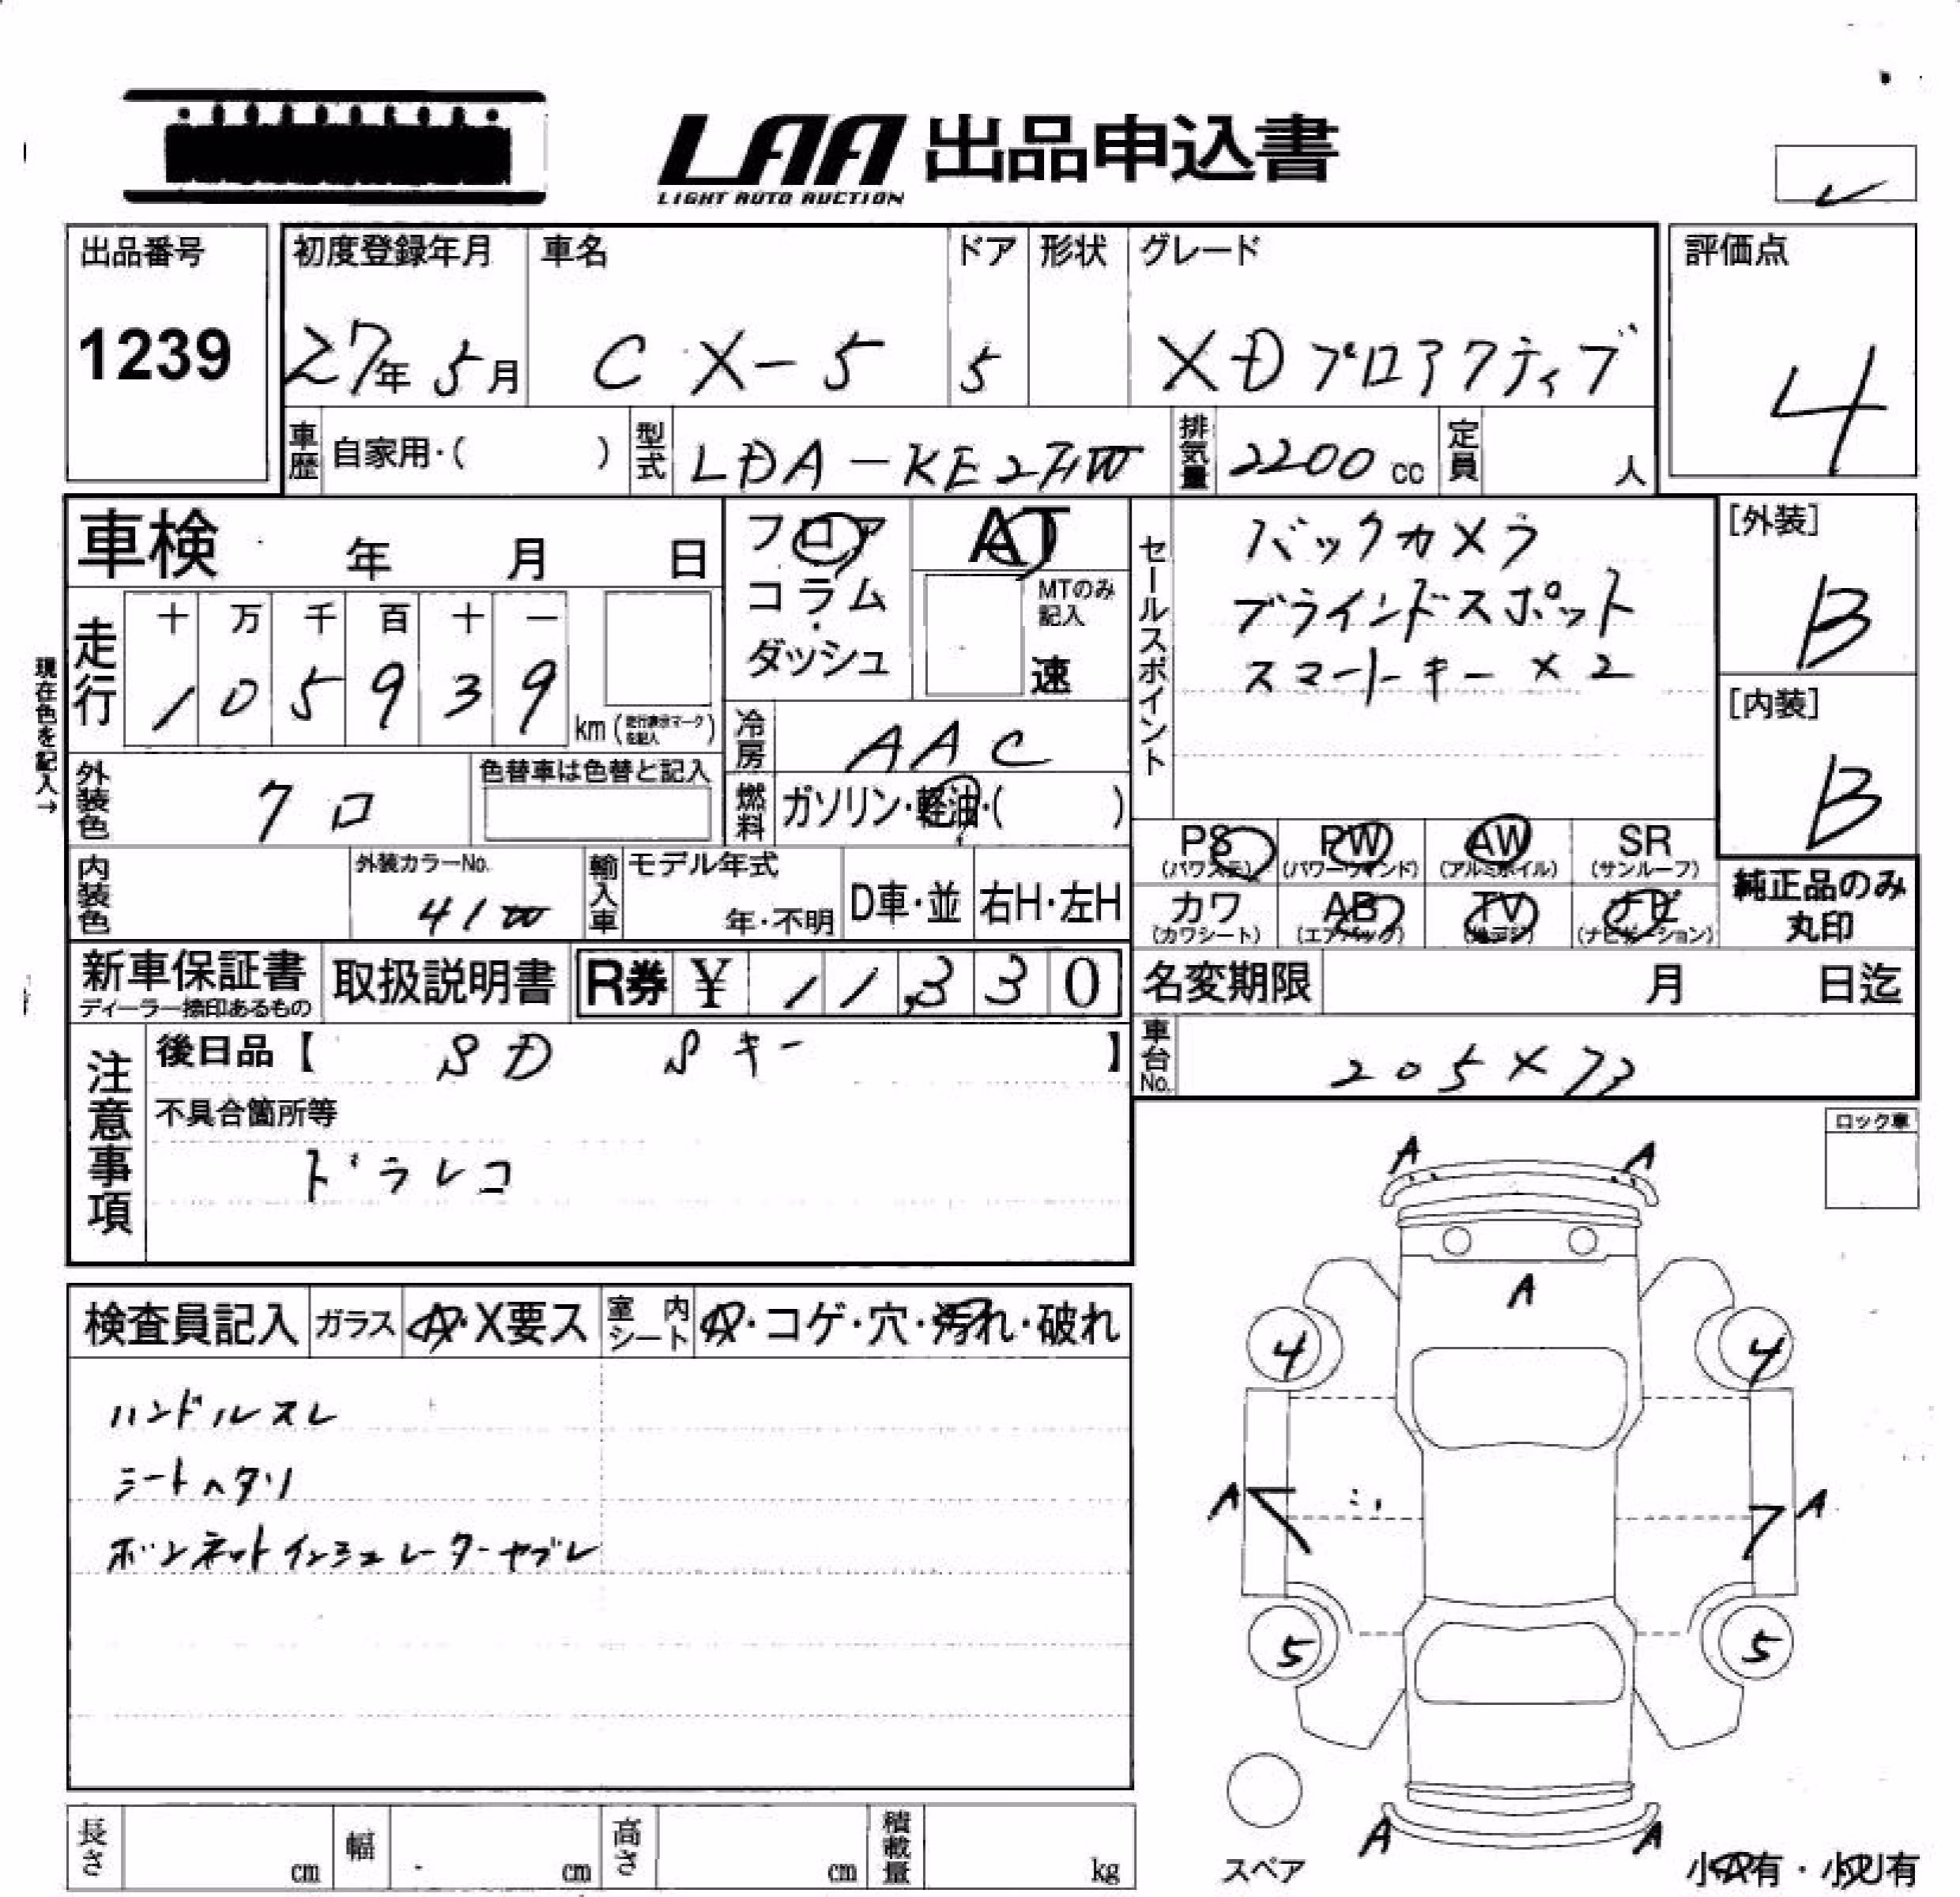 LAA 出品申込書
LIGHT AUTO AUCTION
出品番号
1239
初度登録年月
27年 5月
車名
CX-5
ドア
5
形状
グレード
XDプロアクティブ
評価点
4
車歴
自家用・( )
型式
LDA-KE2FW
排気量
2200 cc
定員
人
車検 年 月 日
フロア
コラム
ダッシュ
AT
MTのみ
記入
速
セールスポイント
バックカメラ
ブラインドスポット
スマートキー×2
[外装]
B
[内装]
B
現在色を記入→
走行
十 万 千 百 十 一
1 0 5 9 3 9
km (走行表示マークを記入)
冷房
AAC
外装色
クロ
色替車は色替と記入
燃料
ガソリン・軽油・( )
PS
(パワステ)
PW
(パワーウインド)
AW
(アルミホイル)
SR
(サンルーフ)
カワ
(カワシート)
AB
(エアバック)
TV
(地デジ)
ナビ
(ナビゲーション)
純正品のみ
丸印
内装色
外装カラーNo.
41W
輸入車
モデル年式
年・不明
D車・並
右H・左H
新車保証書
ディーラー捺印あるもの
取扱説明書
R券 ¥ 11,330
名変期限 月 日迄
車台No.
205×73
注意事項
後日品【 SD Sキー 】
不具合箇所等
ドラレコ
ロック車
検査員記入
ガラス
A・X要ス
室内
シート
A・コゲ・穴・汚れ・破れ
ハンドルスレ
シートヘタリ
ボンネットインシュレーターヤブレ
A A
A
4 4
A A
5 5
A A
スペア
小A有・小U有
長さ cm
幅 cm
高さ cm
積載量 kg